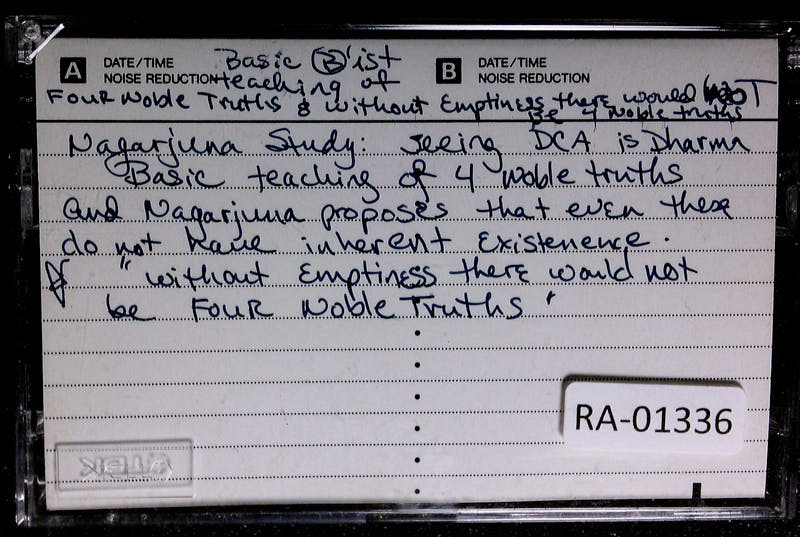 A DATE/TIME NOISE REDUCTION
B DATE/TIME NOISE REDUCTION
Basic B'ist
teaching of
Four Noble Truths & without Emptiness there would NOT
Be 4 Noble truths
Nagarjuna Study: seeing DCA is Dharma
Basic teaching of 4 Noble truths
and Nagarjuna proposes that even these
do not have inherent Existenence.
"without Emptiness there would not
be Four Noble Truths"
RA-01336